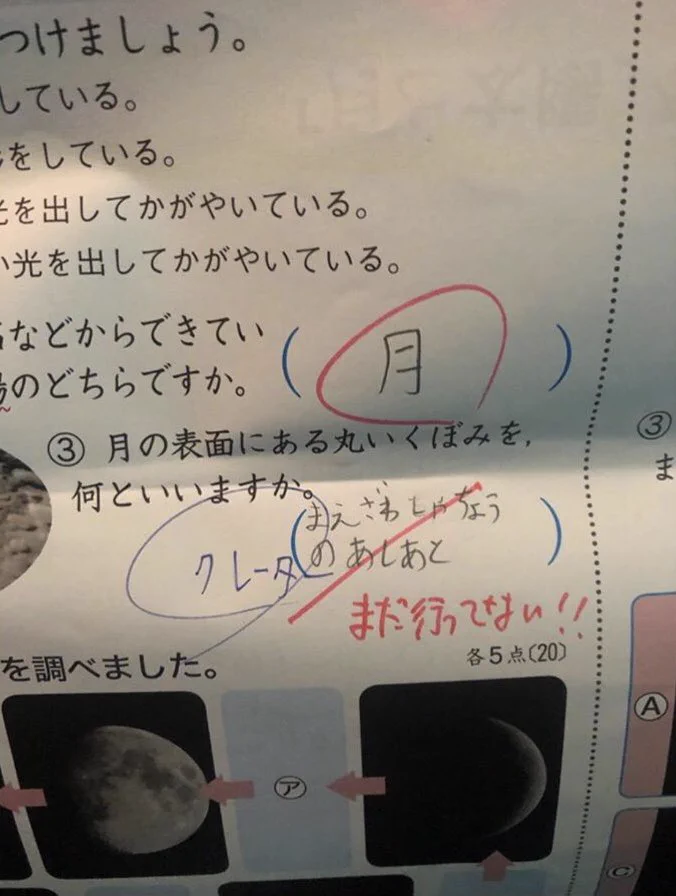 つけましょう。
している。
をしている。
光を出してかがやいている。
い光を出してかがやいている。
などからできてい
のどちらですか。
(月)
③ 月の表面にある丸いくぼみを,
何といいますか。
(まえざわしゃちょう
のあしあと)
クレータ
まだ行ってない!!
を調べました。
各5点(20)
ア
③
ま
A
C